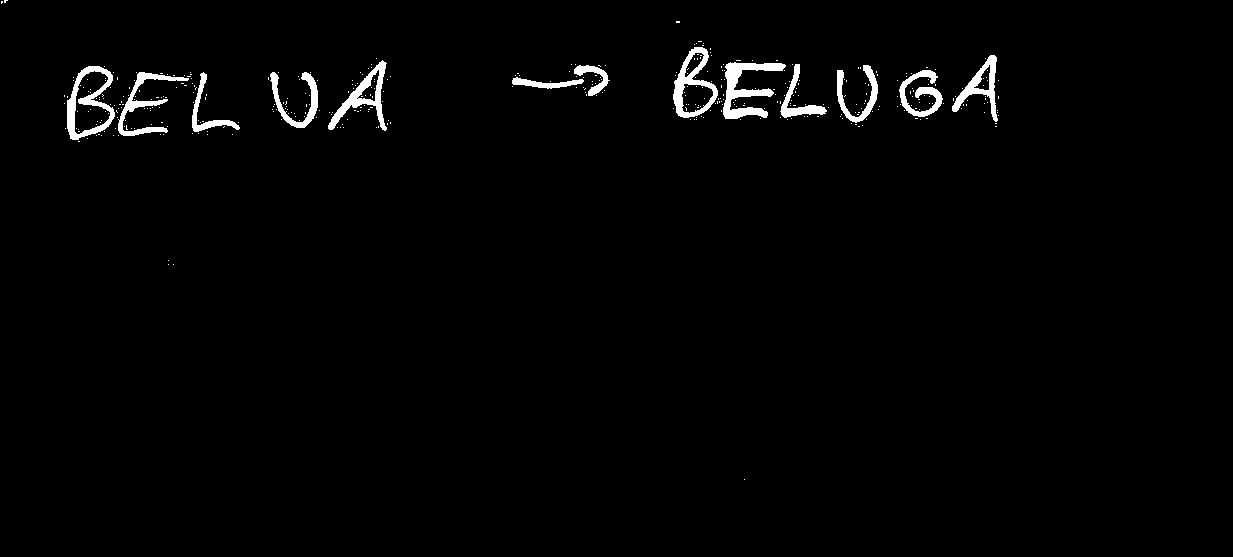 BELUA → BELUGA